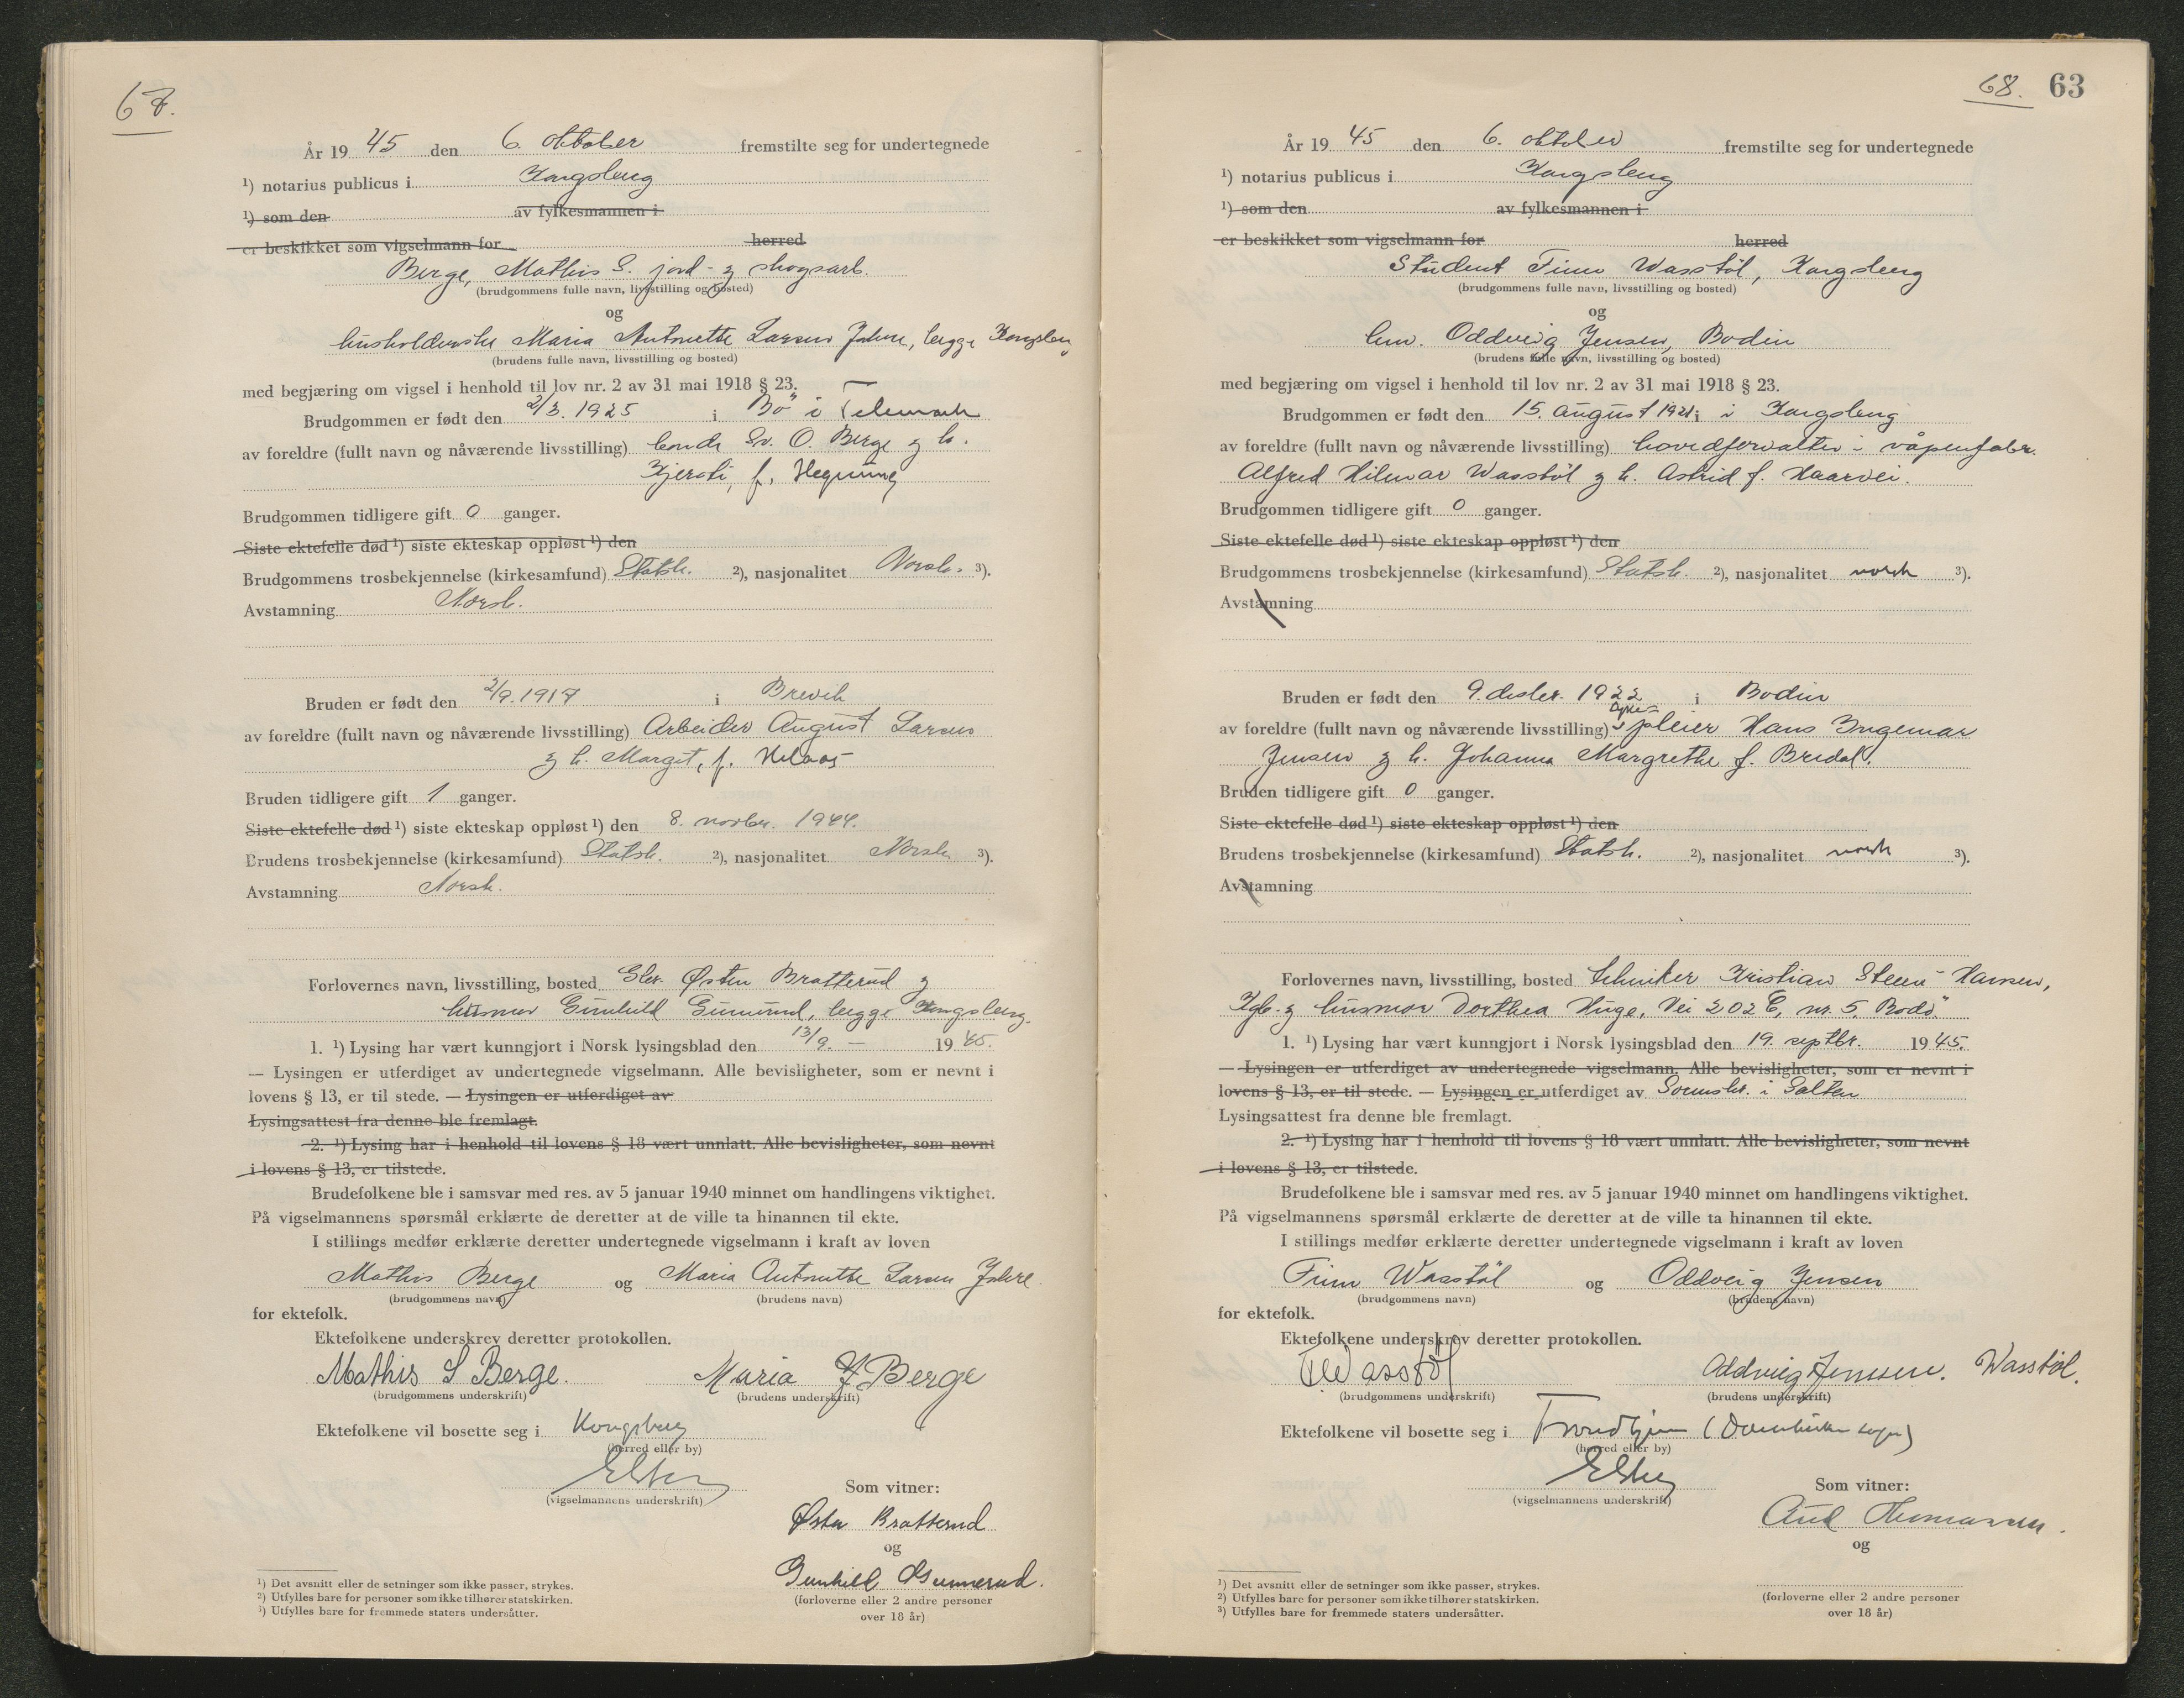 67.
År 19 45 den 6. oktober fremstilte seg for undertegnede
¹) notarius publicus i Kongsberg
¹) som den av fylkesmannen i
er beskikket som vigselmann for herred
Berge, Mathis S. jord- og skogsarb.
(brudgommens fulle navn, livsstilling og bosted)
og
husholderske Maria Antonette Larsen Jahre, begge Kongsberg
(brudens fulle navn, livsstilling og bosted)
med begjæring om vigsel i henhold til lov nr. 2 av 31 mai 1918 § 23.
Brudgommen er født den 2/3. 1925 i Bö i Telemark
av foreldre (fullt navn og nåværende livsstilling) bonde Sv. O. Berge og h.
Kjersti, f. Hegning
Brudgommen tidligere gift 0 ganger.
Siste ektefelle død ¹) siste ekteskap oppløst ¹) den
Brudgommens trosbekjennelse (kirkesamfund) Statsk. ²), nasjonalitet Norsk. ³).
Avstamning Norsk.
Bruden er født den 2/9. 1917 i Brevik
av foreldre (fullt navn og nåværende livsstilling) Arbeider August Larsen
og h. Margit, f. Helaas
Bruden tidligere gift 1 ganger.
Siste ektefelle død ¹) siste ekteskap oppløst ¹) den 8. novbr. 1944.
Brudens trosbekjennelse (kirkesamfund) Statsk. ²), nasjonalitet Norsk ³).
Avstamning Norsk.
Forlovernes navn, livsstilling, bosted Østen Bratterud og
husmor Gunhild Gunnerud, begge Kongsberg.
1. ¹) Lysing har vært kunngjort i Norsk lysingsblad den 13/9. — 19 45.
— Lysingen er utferdiget av undertegnede vigselmann. Alle bevisligheter, som er nevnt i
lovens § 13, er til stede. — Lysingen er utferdiget av
Lysingsattest fra denne ble fremlagt.
2. ¹) Lysing har i henhold til lovens § 18 vært unnlatt. Alle bevisligheter, som nevnt
i lovens § 13, er tilstede.
Brudefolkene ble i samsvar med res. av 5 januar 1940 minnet om handlingens viktighet.
På vigselmannens spørsmål erklærte de deretter at de ville ta hinannen til ekte.
I stillings medfør erklærte deretter undertegnede vigselmann i kraft av loven
Mathis Berge og Maria Antonette Larsen Jahre
(brudgommens navn) (brudens navn)
for ektefolk.
Ektefolkene underskrev deretter protokollen.
Mathis S Berge. Maria J. Berge
(brudgommens underskrift) (brudens underskrift)
Ektefolkene vil bosette seg i Kongsberg
(herred eller by)
(vigselmannens underskrift)
Som vitner:
Østen Bratterud
og
Gunhild Gunnerud.
(forloverne eller 2 andre personer
over 18 år)
¹) Det avsnitt eller de setninger som ikke passer, strykes.
²) Utfylles bare for personer som ikke tilhører statskirken.
³) Utfylles bare for fremmede staters undersåtter.
68. 63
År 19 45 den 6. oktober fremstilte seg for undertegnede
¹) notarius publicus i Kongsberg
¹) som den av fylkesmannen i
er beskikket som vigselmann for herred
Student Finn Wasstöl, Kongsberg
(brudgommens fulle navn, livsstilling og bosted)
og
Oddveig Jensen, Bodin
(brudens fulle navn, livsstilling og bosted)
med begjæring om vigsel i henhold til lov nr. 2 av 31 mai 1918 § 23.
Brudgommen er født den 15. august 1921 i Kongsberg
av foreldre (fullt navn og nåværende livsstilling) hovedforvalter i våpenfabr.
Alfred Hilmar Wasstöl og h. Astrid f. Haarvei.
Brudgommen tidligere gift 0 ganger.
Siste ektefelle død ¹) siste ekteskap oppløst ¹) den
Brudgommens trosbekjennelse (kirkesamfund) Statsk. ²), nasjonalitet norsk ³).
Avstamning
Bruden er født den 9. desbr. 1922 i Bodin
av foreldre (fullt navn og nåværende livsstilling) pleier Hans Ingemar
Jensen og h. Johanna Margrethe f. Bredal.
Bruden tidligere gift 0 ganger.
Siste ektefelle død ¹) siste ekteskap oppløst ¹) den
Brudens trosbekjennelse (kirkesamfund) Statsk. ²), nasjonalitet norsk ³).
Avstamning
Forlovernes navn, livsstilling, bosted tekniker Kristian Steen-Hansen,
Kgb. og husmor Dorthea Huge, Vei 202 C, nr. 5. Bodö
1. ¹) Lysing har vært kunngjort i Norsk lysingsblad den 19. septbr. 19 45.
— Lysingen er utferdiget av undertegnede vigselmann. Alle bevisligheter, som er nevnt i
lovens § 13, er til stede. — Lysingen er utferdiget av Sorenskr. i Salten
Lysingsattest fra denne ble fremlagt.
2. ¹) Lysing har i henhold til lovens § 18 vært unnlatt. Alle bevisligheter, som nevnt
i lovens § 13, er tilstede.
Brudefolkene ble i samsvar med res. av 5 januar 1940 minnet om handlingens viktighet.
På vigselmannens spørsmål erklærte de deretter at de ville ta hinannen til ekte.
I stillings medfør erklærte deretter undertegnede vigselmann i kraft av loven
Finn Wasstöl og Oddveig Jensen
(brudgommens navn) (brudens navn)
for ektefolk.
Ektefolkene underskrev deretter protokollen.
F Wasstöl Oddveig Jensen. Wasstöl.
(brudgommens underskrift) (brudens underskrift)
Ektefolkene vil bosette seg i Trondhjem (Domkirken sogn)
(herred eller by)
(vigselmannens underskrift)
Som vitner:
Aud
og
(forloverne eller 2 andre personer
over 18 år)
¹) Det avsnitt eller de setninger som ikke passer, strykes.
²) Utfylles bare for personer som ikke tilhører statskirken.
³) Utfylles bare for fremmede staters undersåtter.